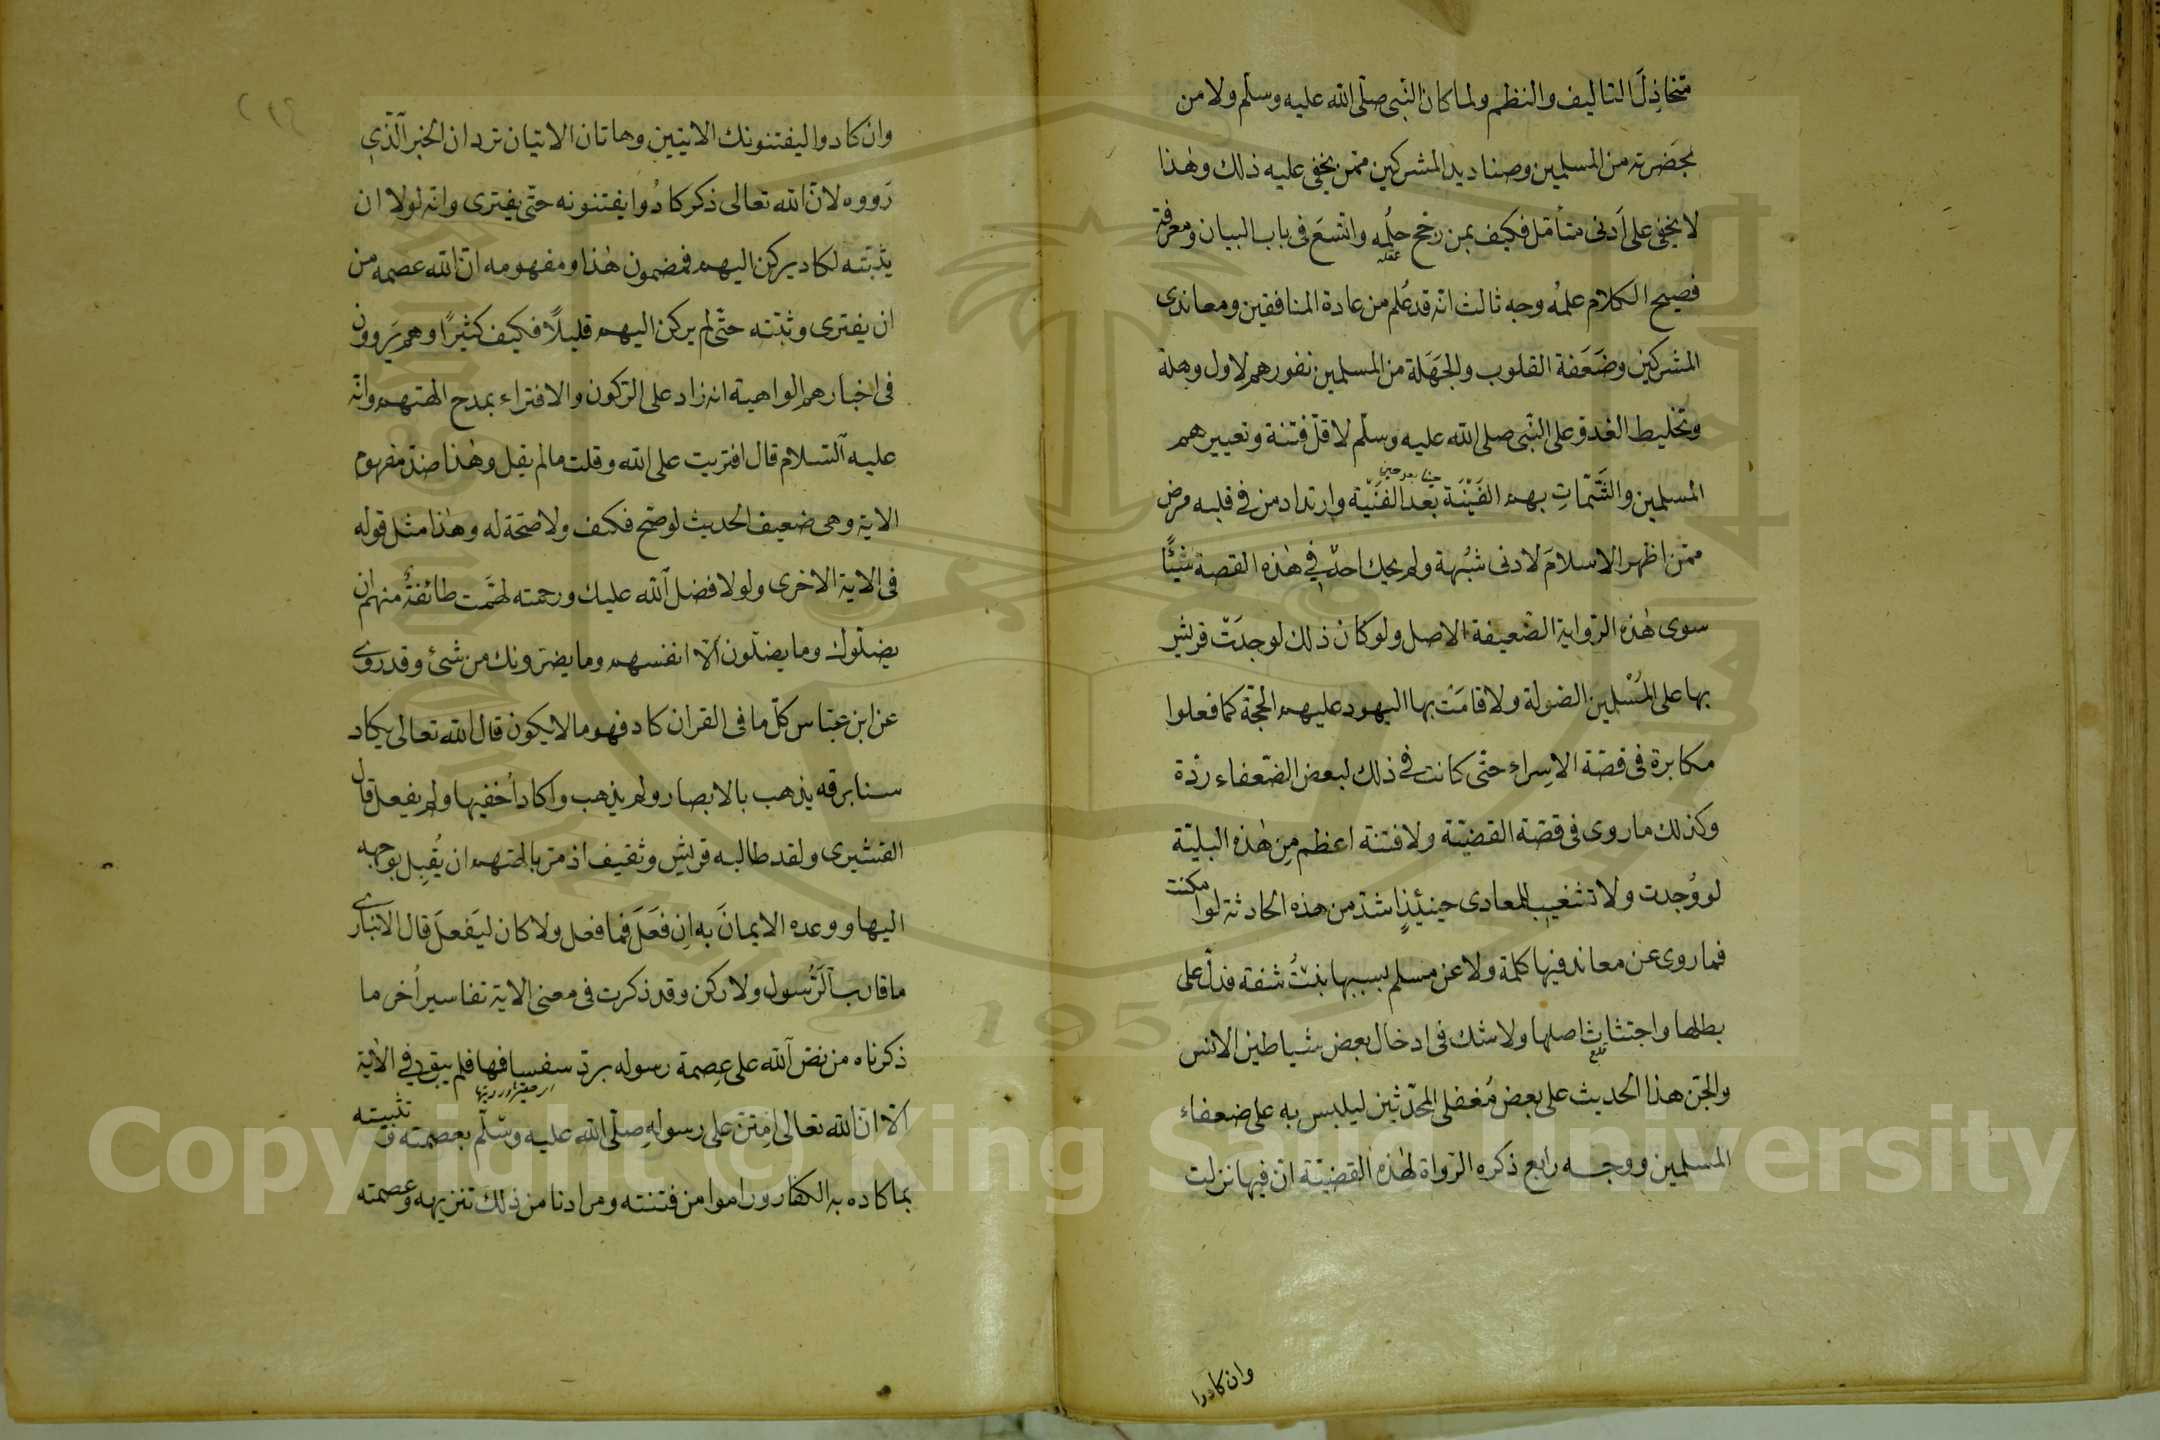 متخاذِلَ التاليف والنظم ولما كان النبى صلّى الله عليه وسلّم ولا من
بحَضرته من المسلمين وصناديد المشركين ممّن يخفى عليه ذلك وهٰذا
لا يخفى على اَدنى متأمّل فكيف بمن رجَح حِلُمه واتّسَعَ فى باب البيان ومعرفة
عقله
فصيح الكلام علمُه وجه ثالث انّه قد عُلم من عادة المنافقين ومعاندى
المشركين وضَعَفة القلوب والجَهَلة من المسلمين نفورهم لاول وهلة
وتخليط العدوّ على النّبى صلى الله عليه وسلّم لاقلّ فتنة وتعييرهم
المسلمين والشَّمّاتِ بهم الفَيْنَة بَعدَ الفَيْنَة وارتداد من فى قلبه مرض
حينا بعد حين
ممّن اظهر الاسلامَ لادنى شبُهة ولم يحك احدٌ فِي هٰذه القصة شيئًا
سوى هٰذه الرّواية الضّعيفة الاصل ولو كان ذلك لوجدَتْ قريش
بها على المُسْلِمين الصّولة ولاقامَتْ بها اليهود عليهم الحجّة كما فعلوا
مكابرة فى قصّة الاِسراء حتّى كانت فى ذلك لبعض الضّعفاء ردّة
وكذلك ما روى فى قصّة القضيّة ولا فتنة اعظم مِن هٰذه البليّة
لو وُجدت ولا تشغيب للمعادى حينئِذٍ اشدّ من هذه الحادثة لو امكنت
فما روى عن معاند فيها كلمة ولا عن مسلم بسببها بنتُ شفة فدلّ على
بطلها واجتثاث اصلها ولا شك فى ادخال بعض شياطين الانس
قلع
والجنّ هذا الحديث على بعض مُغفلى المحدّثين ليلبس به على ضعفاء
المسلمين ووجه رابع ذكره الرّواة لهٰذه القضيّة انّ فيها نزلت
وان كادوا
وان كادوا ليفتنونك الايتين وهاتان الايتان تردان الخبر الّذي
رَووه لانّ الله تعالى ذكر كادُوا يفتنونه حتّى يفترى وانّه لولا ان
يثبّته لكاد يركن اليهم فمضمون هٰذا ومفهومه انّ الله عصمه من
ان يفترى وثبّته حتّى لم يركن اليهم قليلًا فكيف كثيرًا وهم يَروون
فى اخبارهم الواهية انه زاد على الرّكون والافتراء بمدح الهتهم وانّه
عليه السّلام قال افتريت على الله وقلت ما لم يقل وهٰذا ضدّ مفهوم
الاية وهى ضعيف الحديث لو صحّ فكيف ولا صحّة له وهٰذا مثل قوله
فى الاية الاخرى ولولا فضل الله عليك ورحمته لهَمَّت طائفةٌ منهم ان
يضلّوك وما يضلّون الّا انفسهم وما يضرّونك من شئ وقد روى
عن ابن عبّاس كلّ ما فى القران كاد فهو ما لا يكون قال الله تعالى يكاد
سنا برقه يذهب بالابصار ولم يذهب واكاد اُخفيها ولم يفعل قال
القشيرى ولقد طالبه قريش وثقيف اذ مرّ بالهتهم ان يُقبِل بوجهه
اليها ووعده الايمانَ به اِن فَعَلَ فما فعل ولا كان ليَفعلَ قال الانبارى
ما قارب الرّسول ولا ركن وقد ذكرت فى معنى الاية تفاسير اُخر ما
ذكرناه من نصّ الله على عِصمة رسوله بردّ سفسافها فلم يبق فِي الاية
الّا انّ الله تعالى امتنّ على رسولهِ صلّى الله عليه وسّلّم بعصمته وتثبيته
بما كاده به الكفار وراموا من فتنته ومرادنا من ذلك تنزيهه وعصمته
Copyright © King Saud University
1957